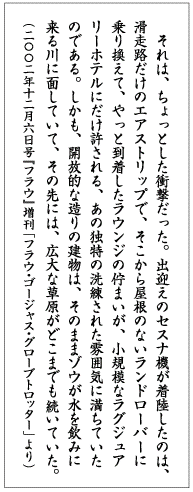 それは、ちょっとした衝撃だった。出迎えのセスナ機が着陸したのは、
滑走路だけのエアストリップで、そこから屋根のないランドローバーに
乗り換えて、やっと到着したラウンジの佇まいが、小規模なラグジュア
リーホテルにだけ許される、あの独特の洗練された雰囲気に満ちていた
のである。しかも、開放的な造りの建物は、そのままゾウが水を飲みに
来る川に面していて、その先には、広大な草原がどこまでも続いていた。
（二〇〇二年十二月六日号『フラウ』増刊「フラウ・ゴージャス・グローブトロッター」より）